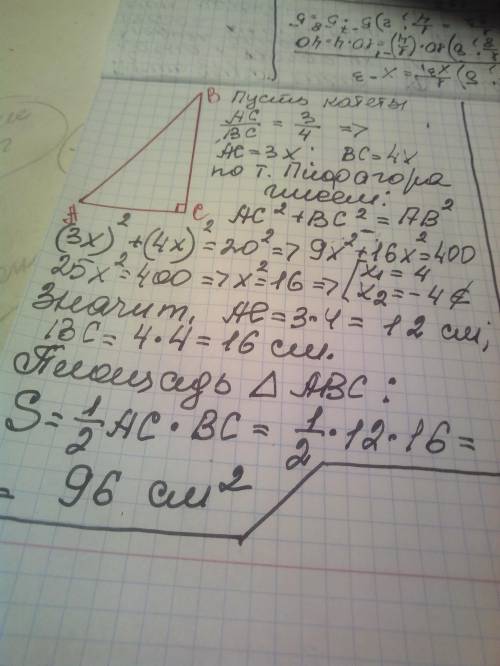 B
A
C
Пусть катеты
AC/BC = 3/4 =>
AC = 3x; BC = 4x
по т. Пифагора
имеем:
AC² + BC² = AB²
(3x)² + (4x)² = 20² => 9x² + 16x² = 400
25x² = 400 => x² = 16 => [x₁ = 4
x₂ = -4 ⊄
Значит, AC = 3·4 = 12 см;
BC = 4·4 = 16 см.
Площадь △ ABC:
S = 1/2 AC · BC = 1/2 · 12 · 16 =
= 96 см²